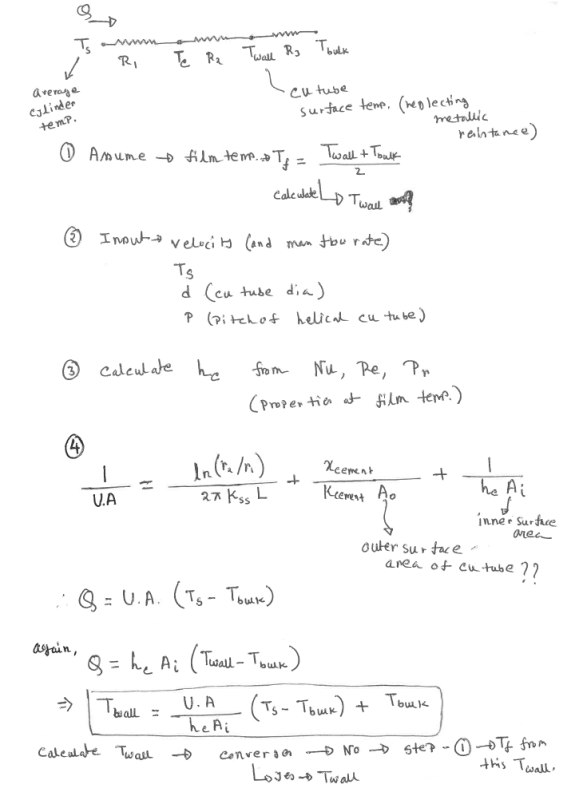 Q →
Ts R1 Tc R2 Twall R3 Tbulk
average cylinder temp.
cu tube
surface temp. (neglecting
metallic
resistance)
① Assume → film temp. → Tf = (Twall + Tbulk) / 2
calculate → Twall
② Input → velocity (and mass flow rate)
Ts
d (cu tube dia)
P (Pitch of helical cu tube)
③ Calculate hc from Nu, Re, Pr
(Properties at film temp.)
④
1 / U.A = ln(r2/r1) / 2π Kss L + xcement / Kcement Ao + 1 / hc Ai
inner surface
area
outer surface
area of cu tube ??
∴ Q = U.A. (Ts - Tbulk)
again,
Q = hc Ai (Twall - Tbulk)
⇒ Twall = U.A / hc Ai (Ts - Tbulk) + Tbulk
Calculate Twall → conversion → No → step - ① → Tf from
this Twall.
↳ yes → Twall